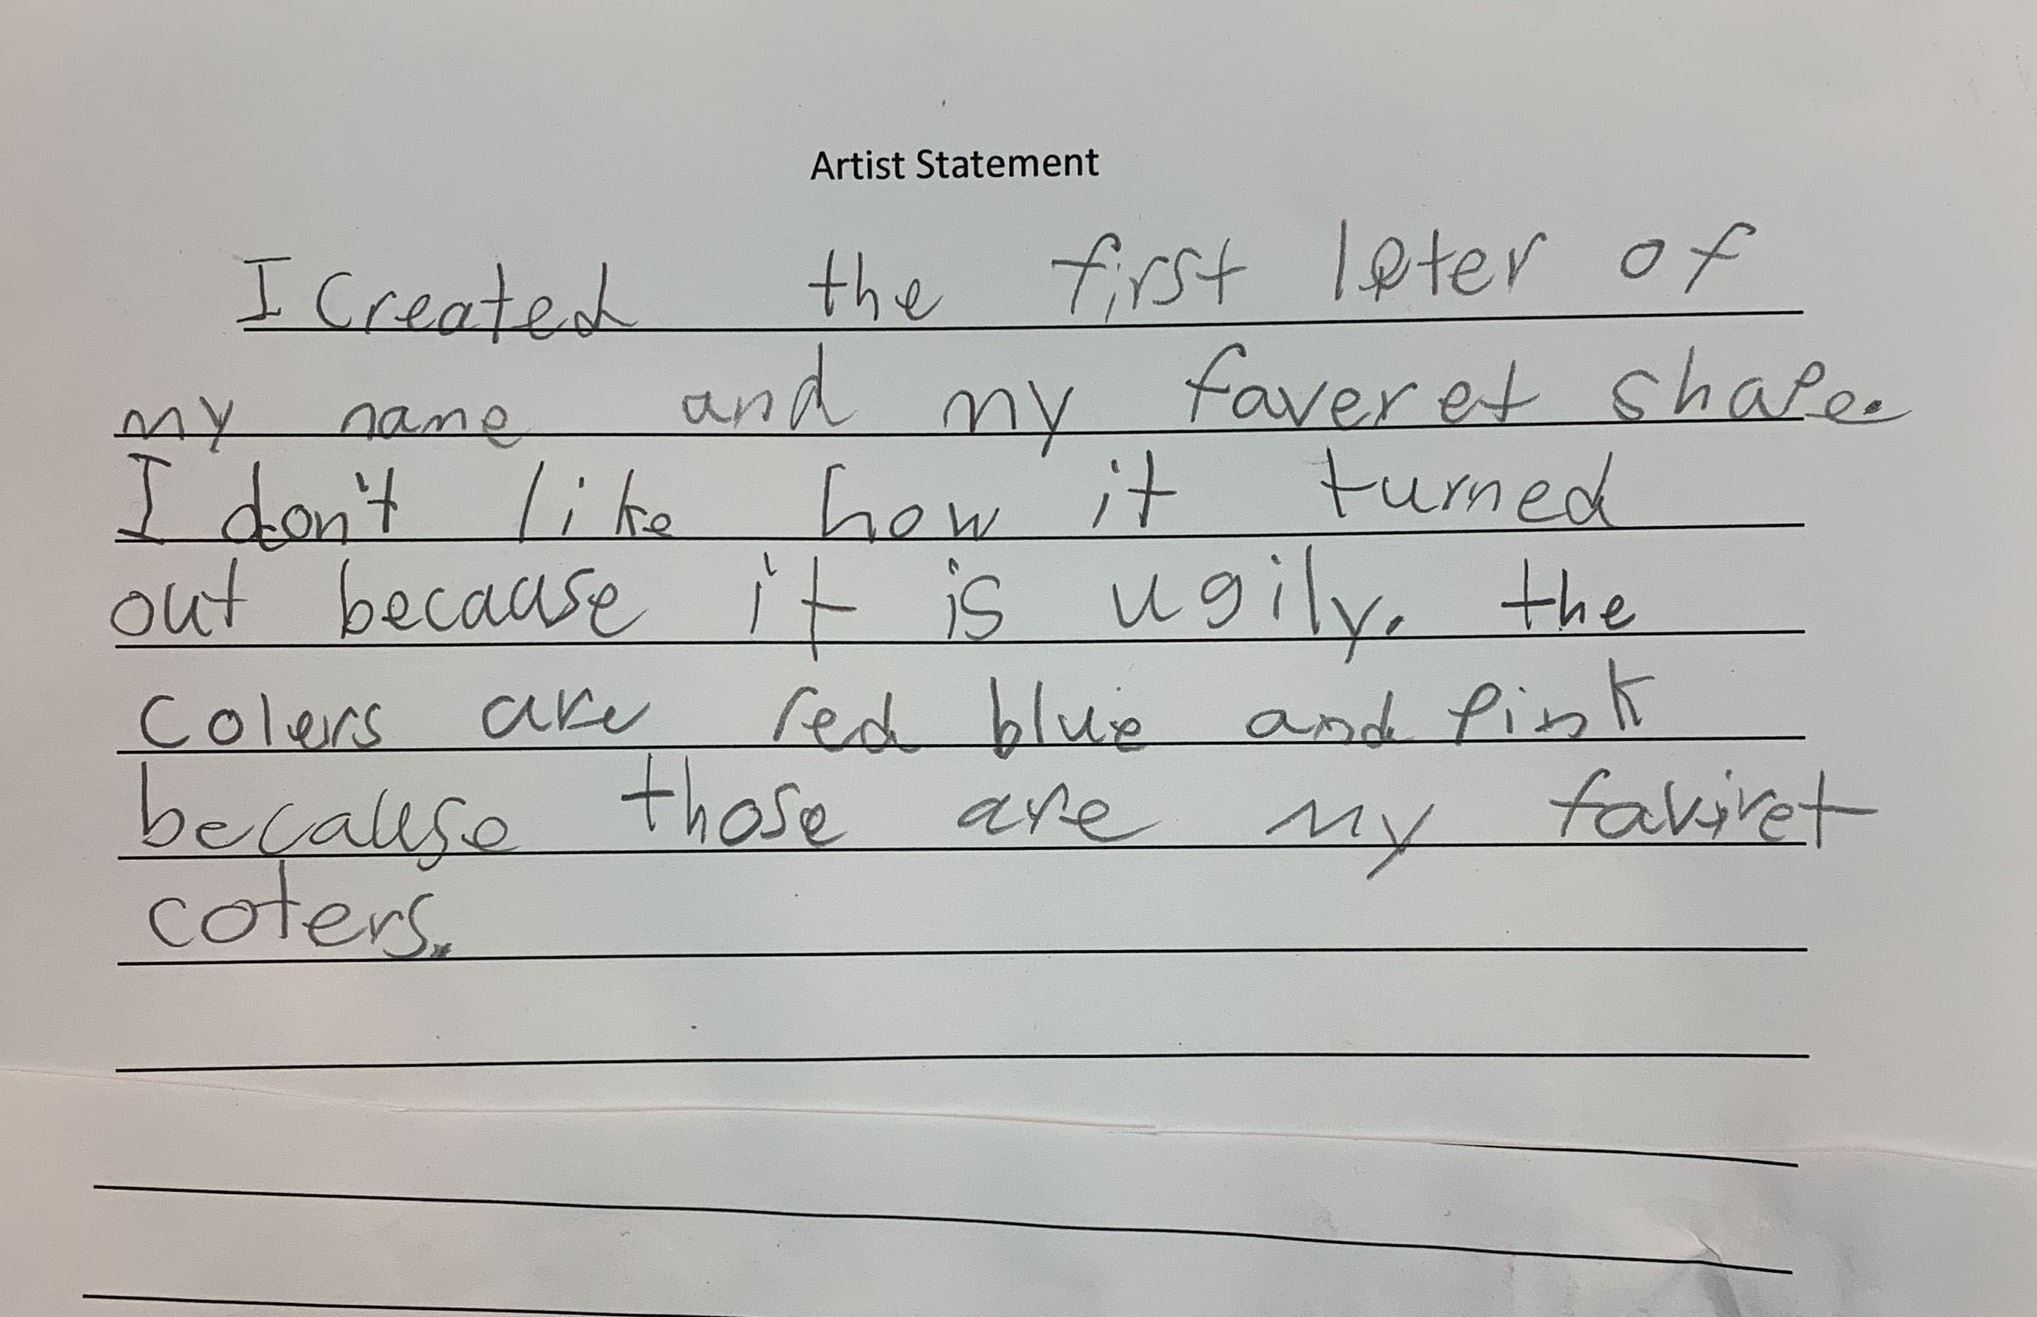 Artist Statement
I Created the first leter of
my name and my faveret shape.
I don't like how it turned
out because it is ugily. the
Colers are red blue and Pink
because those are my faviret
coters.